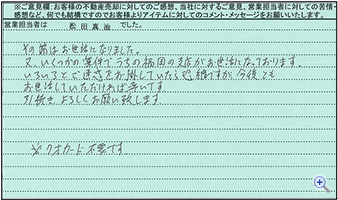 ※ご意見欄:お客様の不動産売却に対してのご感想、当社に対するご意見、営業担当者に対しての苦情・
感想など、何でも結構ですのでお客様よりアイテムに対してのコメント・メッセージをお願いいたします。
営業担当者は 松田真治 でした。
その節はお世話になりました。
又、いくつかの案件でうちの福岡の支店がお世話になっております。
いろいろとご迷惑をお掛けしていたら恐縮ですが、今後とも
お世話していただければ幸いです。
引続きよろしくお願い致します。
※クオカード不要です